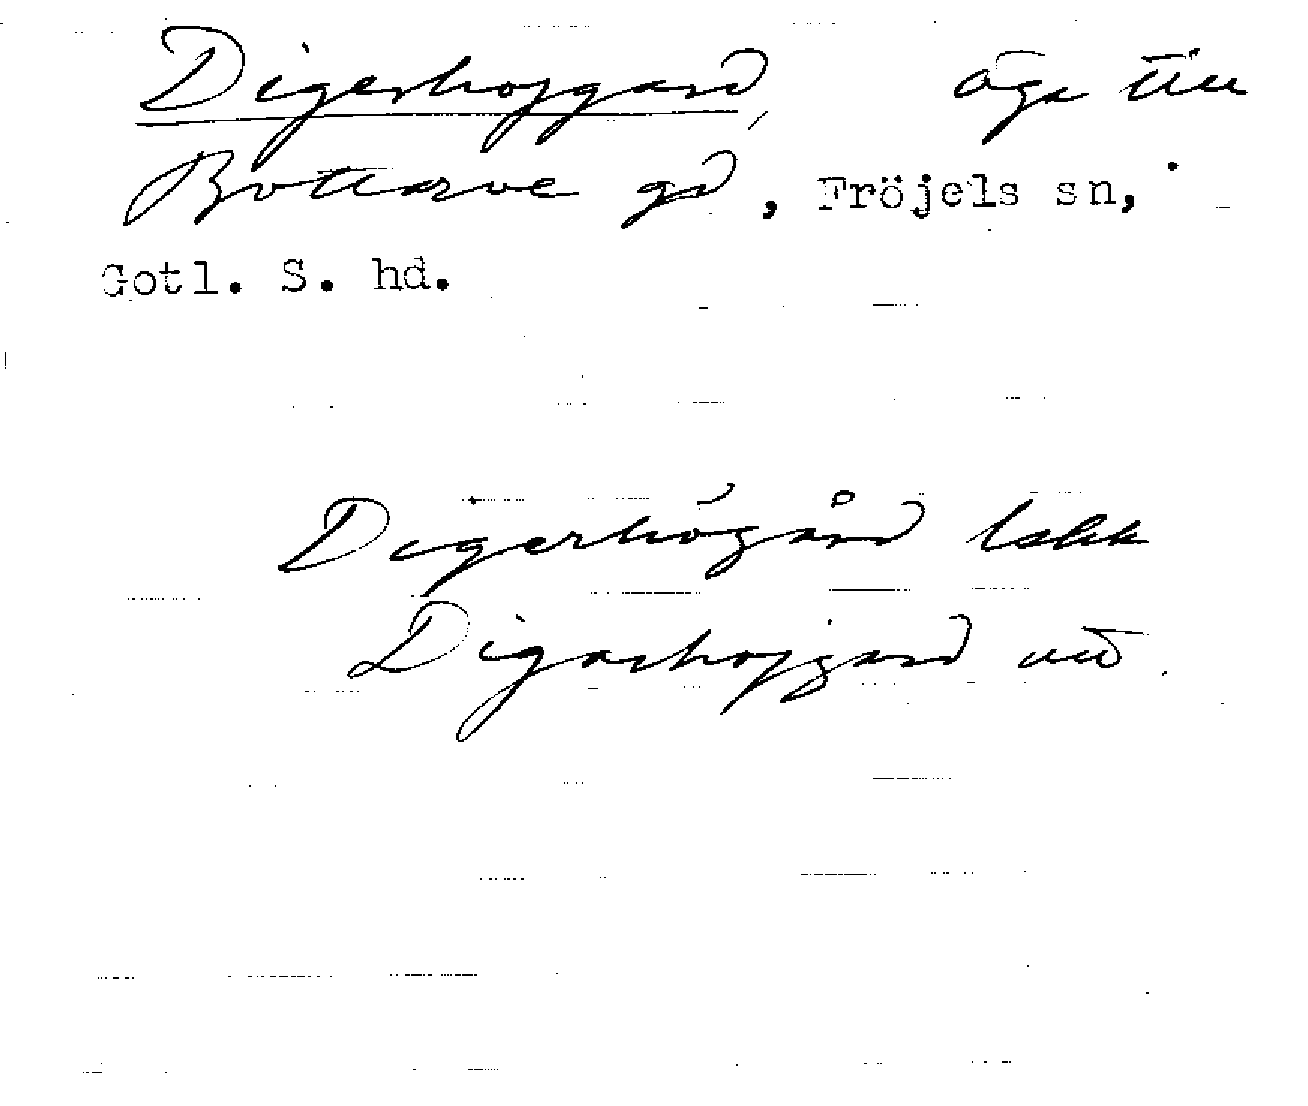 Digerhojgard, äga till
Bottarve gd, Fröjels sn,
Gotl. S. hd.
Digerhögård lskk
Digerhojgard